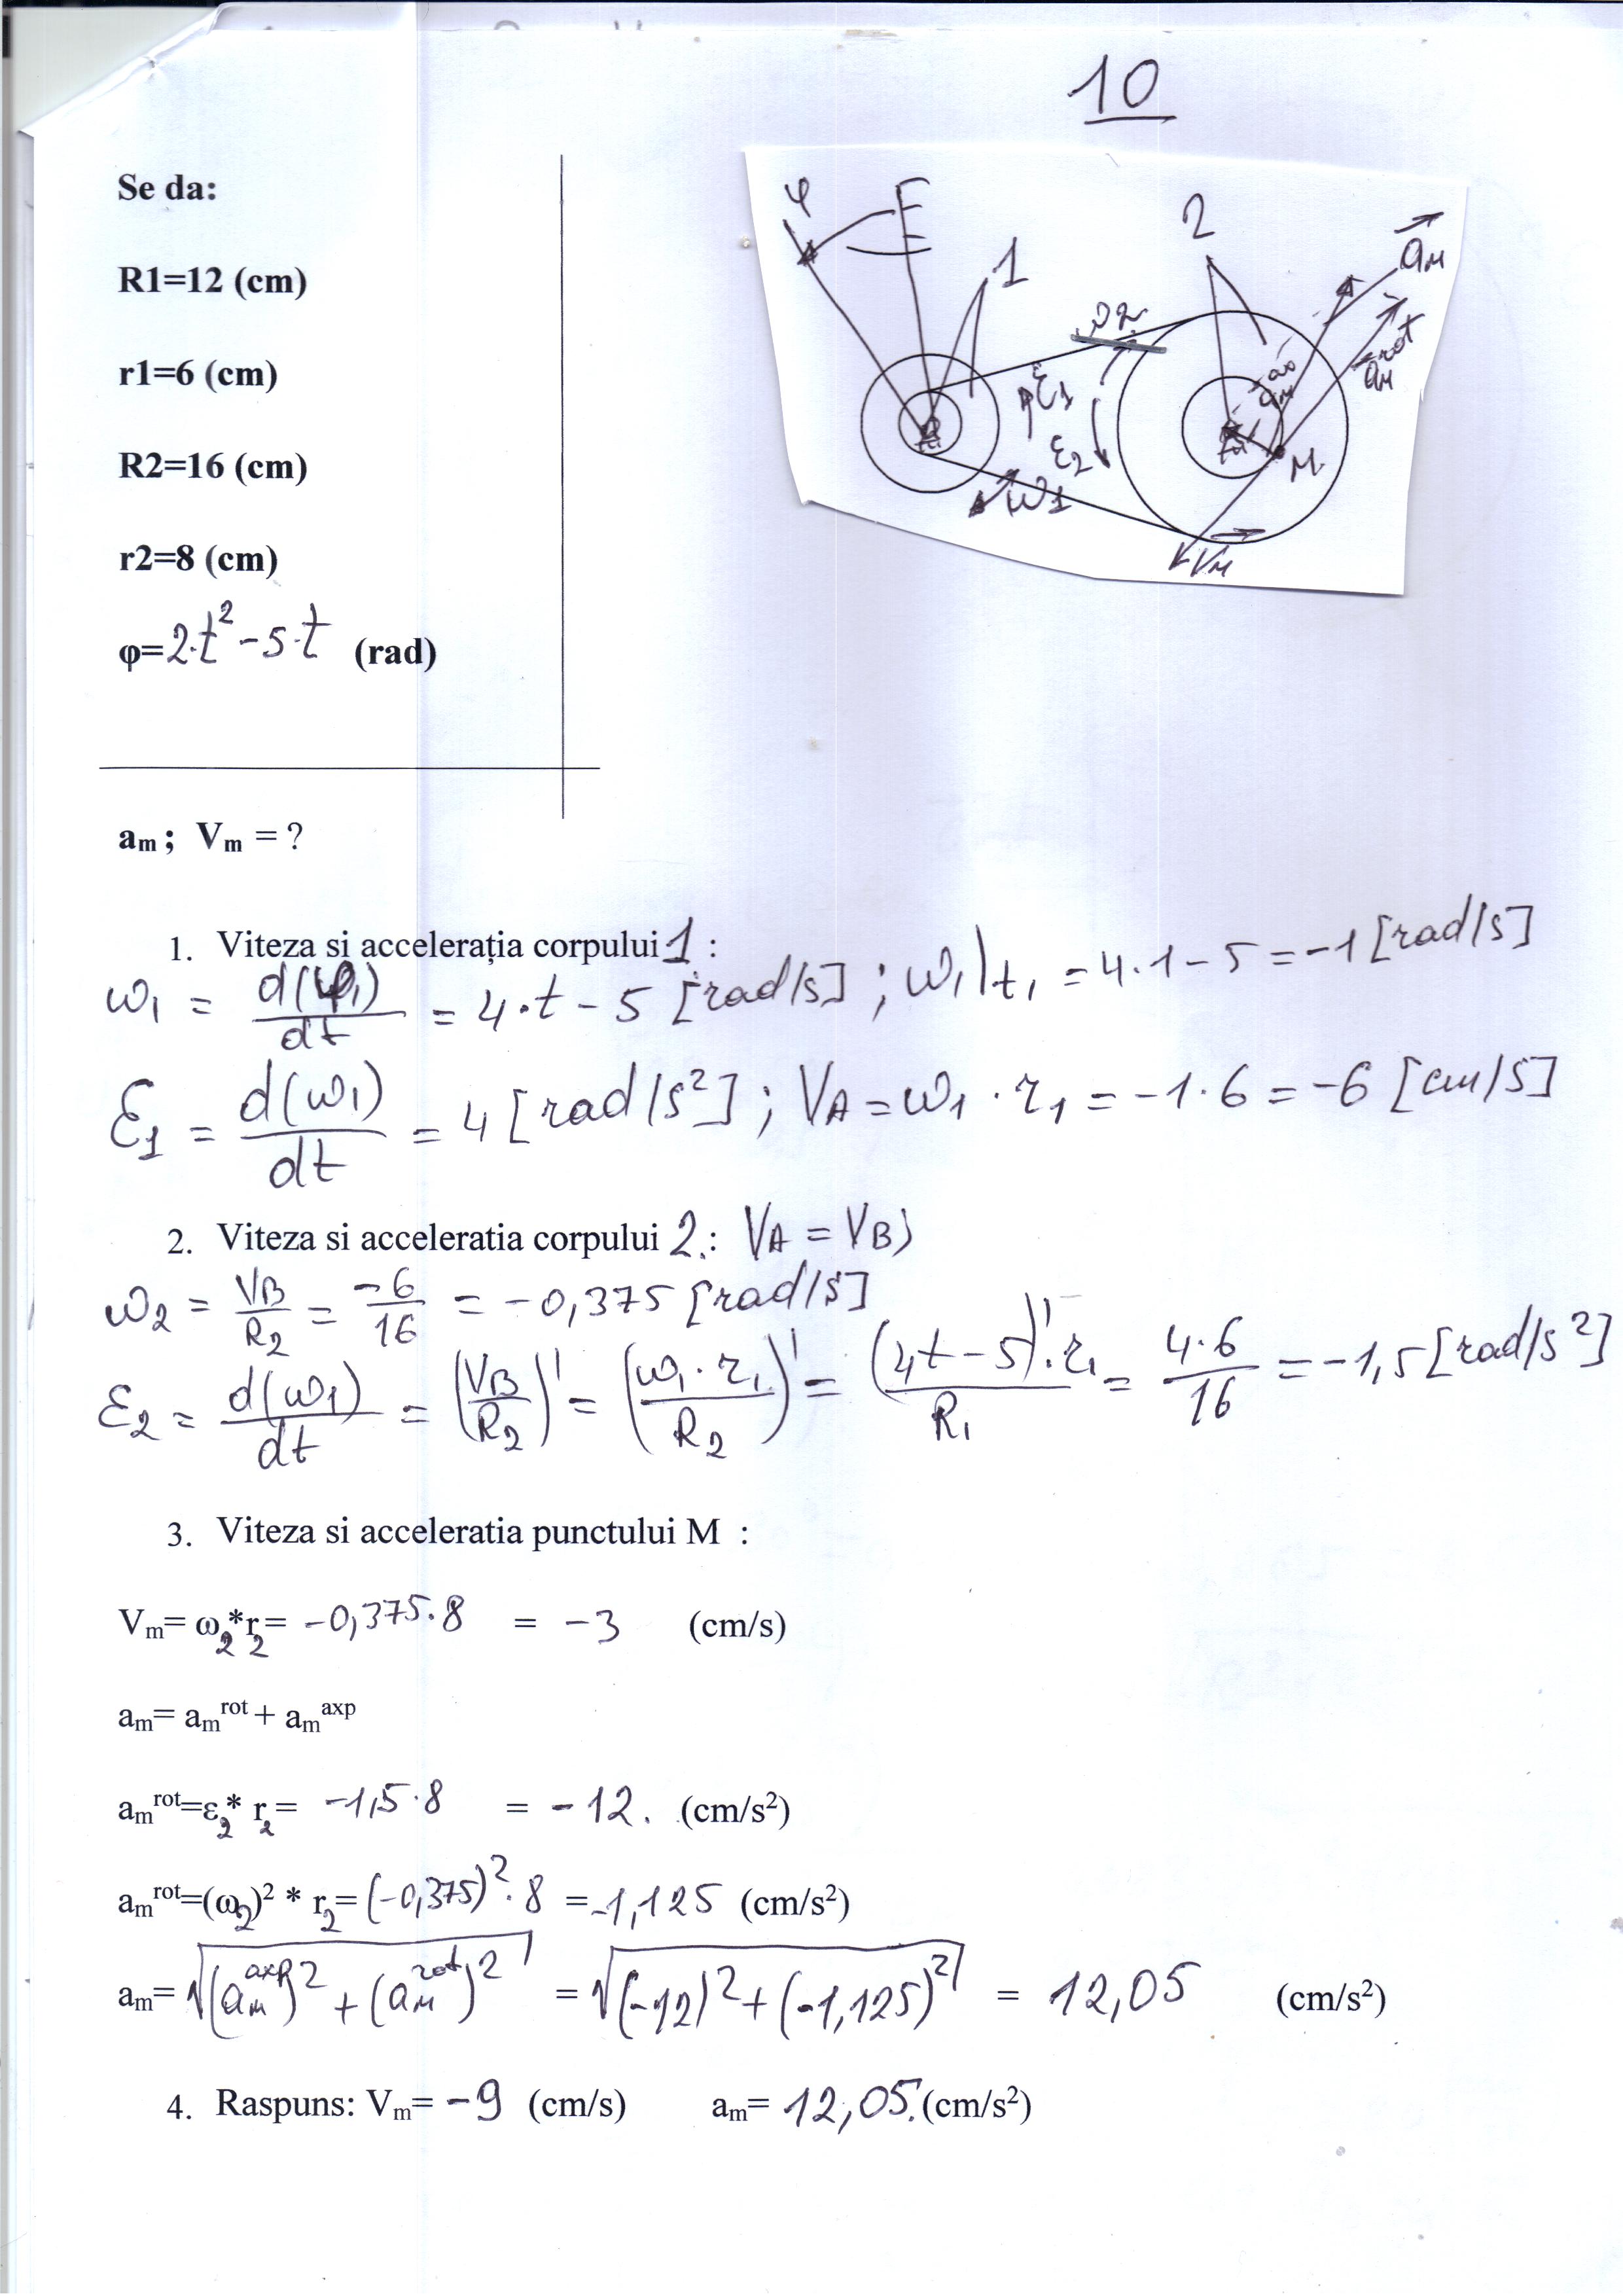 10
Se da:
R1=12 (cm)
r1=6 (cm)
R2=16 (cm)
r2=8 (cm)
φ=2·t²-5·t (rad)
φ
1
2
ω2
ε1
ε2
ω1
M
VM
aM
aM^rot
am; Vm = ?
1. Viteza si accelerația corpului 1 :
ω1 = d(φ1)/dt = 4·t-5 [rad/s] ; ω1|t1 = 4·1-5 = -1 [rad/s]
ε1 = d(ω1)/dt = 4 [rad/s²] ; VA = ω1·r1 = -1·6 = -6 [cm/s]
2. Viteza si acceleratia corpului 2.: VA = VB)
ω2 = VB/R2 = -6/16 = -0,375 [rad/s]
ε2 = d(ω1)/dt = (VB/R2)' = (ω1·r1/R2)' = (4t-5)'·r1/R1 = 4·6/16 = -1,5 [rad/s²]
3. Viteza si acceleratia punctului M :
Vm= ω2*r2= -0,375·8 = -3 (cm/s)
am= am^rot + am^axp
am^rot=ε2* r2= -1,5·8 = -12. (cm/s²)
am^rot=(ω2)² * r2= (-0,375)²·8 =-1,125 (cm/s²)
am= √(aM^axp)²+(aM^rot)² = √(-12)²+(-1,125)² = 12,05 (cm/s²)
4. Raspuns: Vm= -9 (cm/s) am= 12,05.(cm/s²)